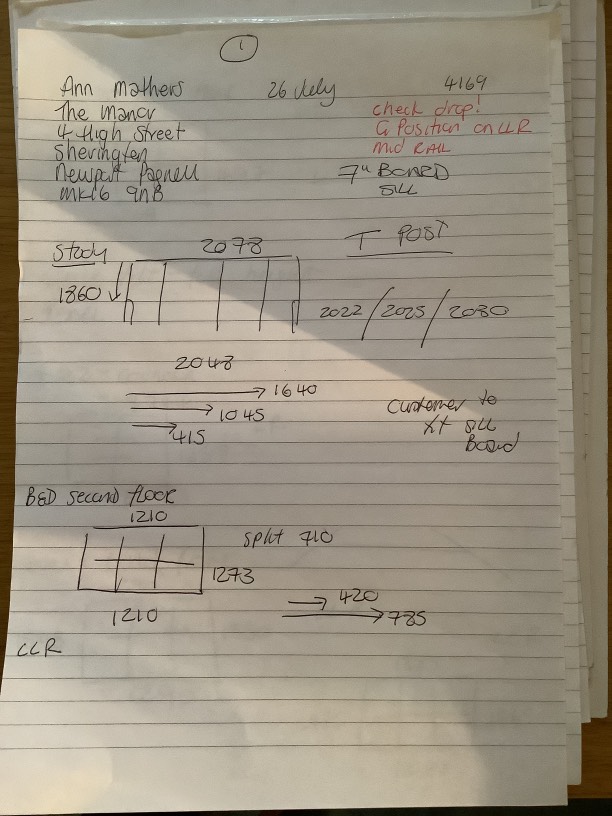 1
Ann Mathers 26 July 4169
The Manor check drop!
4 High Street G Position on LLR
Sherington mid RAIL
Newport Pagnell 7" BOARD
mk16 9nB SILL
Study 2078 T POST
1860
2022/2025/2030
2048
1640
1045
415
Customer to
xt sill
Board
BED second floor
1210
split 710
1273
420
1210 785
CCR